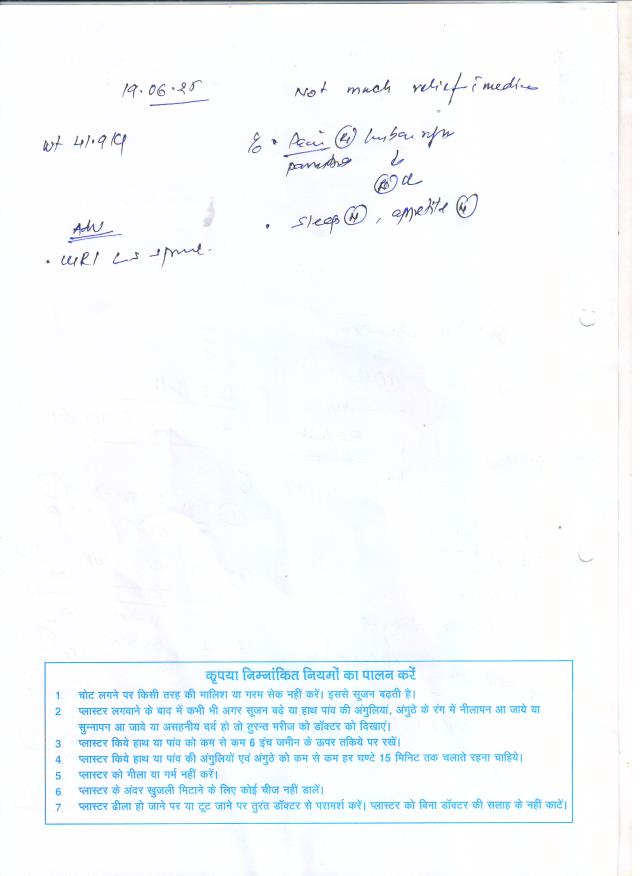 19.06.25
Not much relief c medicine
wt 41.9 kg
Pain lumbar
Adv
• sleep, appetite
• MRI LS spine.
कृपया निम्नांकित नियमों का पालन करें
1. चोट लगने पर किसी तरह की मालिश या गरम सेक नहीं करें। इससे सूजन बढ़ती है।
2. प्लास्टर लगवाने के बाद में कभी भी अगर सूजन बढ़े या हाथ पांव की अंगुलियां, अंगुठे के रंग में नीलापन आ जाये या
सुन्नापन आ जाये या असहनीय दर्द हो तो तुरन्त मरीज को डॉक्टर को दिखाएं।
3 प्लास्टर किये हाथ या पांव को कम से कम 6 इंच जमीन के ऊपर तकिये पर रखें।
4. प्लास्टर किये हाथ या पांव की अंगुलियों एवं अंगुठे को कम से कम हर घण्टे 15 मिनिट तक चलाते रहना चाहिये।
5 प्लास्टर को गीला या गर्म नहीं करें।
6 प्लास्टर के अंदर खुजली मिटाने के लिए कोई चीज नहीं डालें।
7. प्लास्टर ढीला हो जाने पर या टूट जाने पर तुरंत डॉक्टर से परामर्श करें। प्लास्टर को बिना डॉक्टर की सलाह के नहीं काटें।